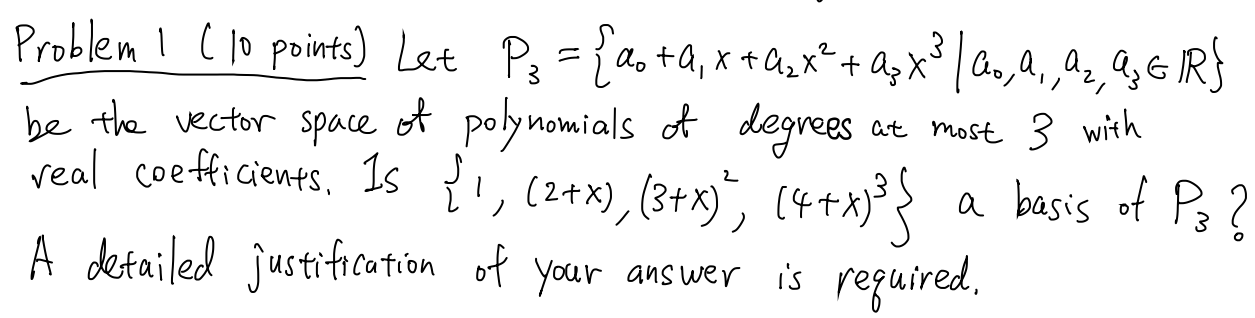 Problem 1 (10 points) Let P₃ = {a₀ + a₁ x + a₂x² + a₃x³ | a₀, a₁, a₂, a₃ ∈ ℝ}
be the vector space of polynomials of degrees at most 3 with
real coefficients. Is {1, (2+x), (3+x)², (4+x)³} a basis of P₃?
A detailed justification of your answer is required.